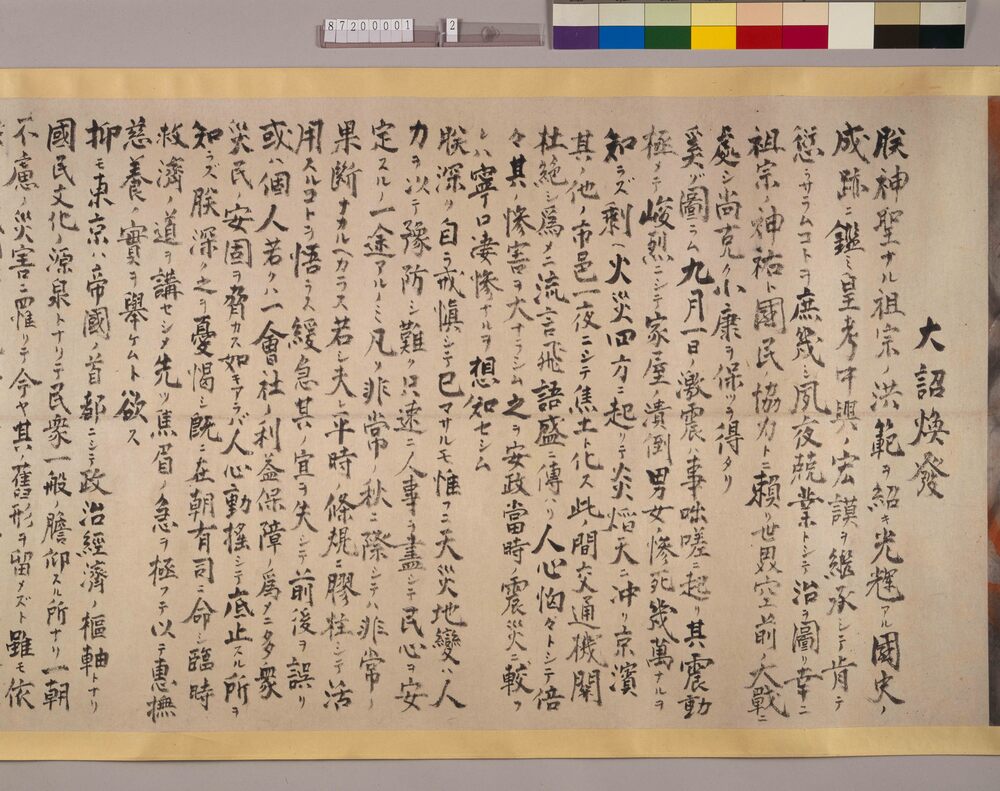 87200001 2
大詔煥發
朕神聖ナル祖宗ノ洪範ヲ紹キ光輝アル國史ノ
成跡ニ鑑ミ皇考中興ノ宏謨ヲ継承シテ肯テ
愆ラサラムコトヲ庶幾シ夙夜兢業トシテ治ヲ圖リ幸ニ
祖宗ノ神祐ト國民ノ協力トニ賴リ世界空前ノ大戰ニ
處シ尚克ク小康ヲ保ツヲ得タリ
奚ゾ圖ラム九月一日ノ激震ハ事咄嗟ニ起リ其震動
極メテ峻烈ニシテ家屋ノ潰倒男女ノ慘死幾萬ナルヲ
知ラズ剰ヘ火災四方ニ起リテ炎熖天ニ冲リ京濱
其ノ他ノ市邑一夜ニシテ焦土ト化ス此ノ間交通機關
杜絶シ爲メニ流言飛語盛ニ傳ハリ人心恟々トシテ倍
々其ノ惨害ヲ大ナラシム之ヲ安政當時ノ震災ニ較フ
レハ寧ロ凄惨ナルヲ想知セシム
朕深ク自ラ戒愼シテ已マサルモ惟フニ天災地變ハ人
力ヲ以テ豫防シ難ク只速ニ人事ヲ盡シテ民心ヲ安
定スルノ一途アルノミ凡ソ非常ノ秋ニ際シテハ非常ノ
果斷ナカルヘカラス若シ夫レ平時ノ條規ニ膠柱シテ活
用スルコトヲ悟ラス緩急其ノ宜ヲ失シテ前後ヲ誤リ
或ハ個人若クハ一會社ノ利益保障ノ爲メニ多衆
災民ノ安固ヲ脅カス如キアラバ人心動搖シテ底止スル所ヲ
知ラズ朕深ク之ヲ憂惕シ既ニ在朝有司ニ命シ臨時
救濟ノ道ヲ講セシメ先ツ焦眉ノ急ヲ極フテ以テ惠撫
慈養ノ實ヲ舉ケムト欲ス
抑モ東京ハ帝國ノ首都ニシテ政治經濟ノ樞軸トナリ
國民文化ノ源泉トナリテ民衆一般ノ膽仰スル所ナリ一朝
不慮ノ災害ニ罹リテ今ヤ其ノ舊形ヲ留メズト雖モ依